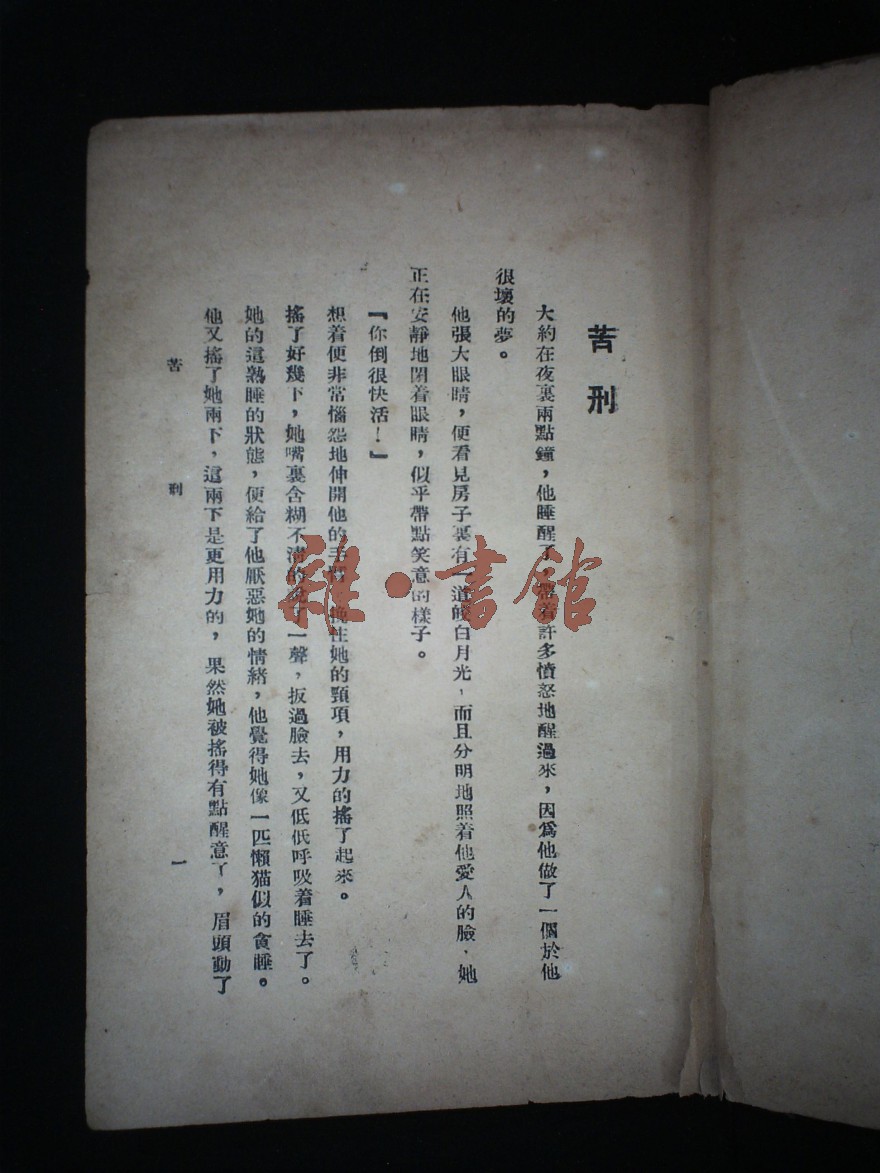 苦刑
大約在夜裏兩點鐘，他睡醒了，帶着許多憤怒地醒過來，因爲他做了一個於他
很壞的夢。
他張大眼睛，便看見房子裏有一道皎白月光，而且分明地照着他愛人的臉，她
正在安靜地閉着眼睛，似乎帶點笑意的樣子。
『你倒很快活！』
想着便非常惱怨地伸開他的手臂，挽住她的頸項，用力的搖了起來。
搖了好幾下，她嘴裏含糊不清的了一聲，扳過臉去，又低低呼吸着睡去了。
她的這熟睡的狀態，便給了他厭惡她的情緒，他覺得她像一匹懶猫似的貪睡。
他又搖了她兩下，這兩下是更用力的，果然她被搖得有點醒意了，眉頭動了
苦刑 一
雜·書館